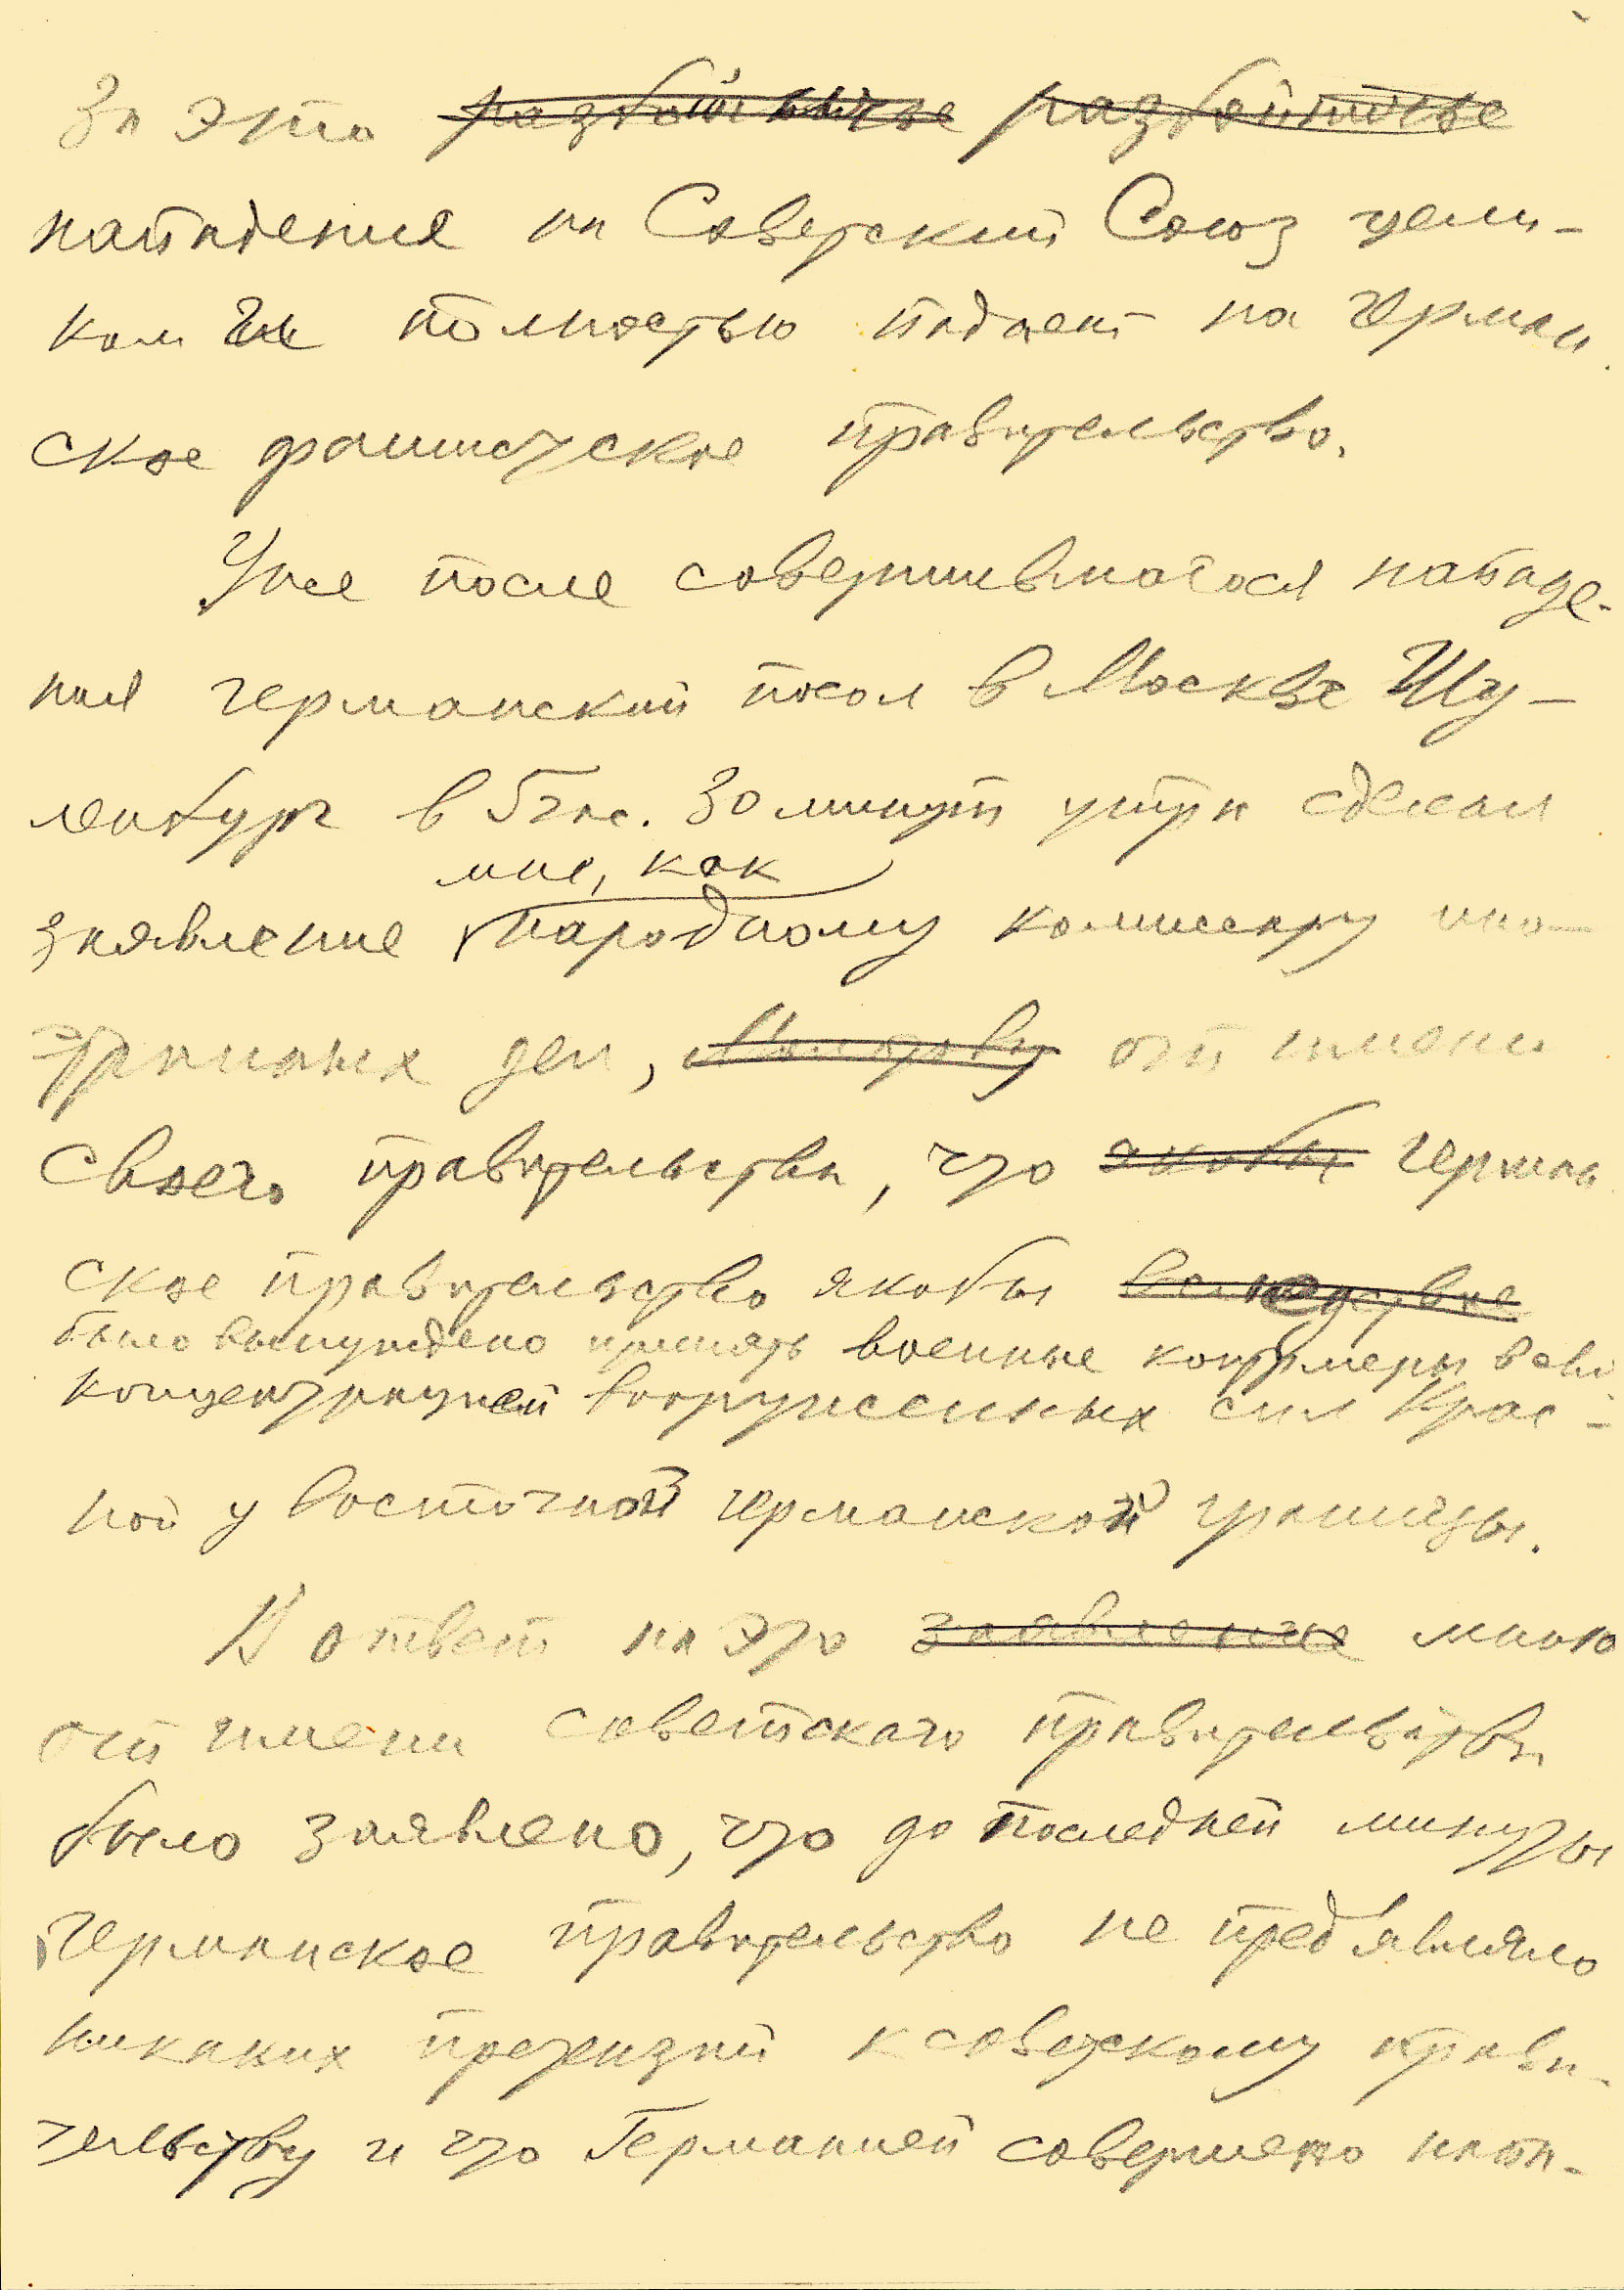 За это разбойничье разбойничье
нападение на Советский Союз цели-
ком и полностью падает на герман
ское фашистское правительство.
Уже после совершившегося нападе-
ния германский посол в Москве Шу-
ленбург в 5 час. 30 минут утра сделал
мне, как
заявление народному комиссару ино-
странных дел, Молотову от имени
своего правительства, что якобы герман
ское правительство якобы вследствие
было вынуждено принять военные контрмеры в связи
концентрацией вооруженных сил Крас-
ной у восточной германской границы.
В ответ на это заявление мною
от имени советского правительства
было заявлено, что до последней минуты
германское правительство не пред'являло
никаких претензий к советскому прави-
тельству и что Германией совершено напа-